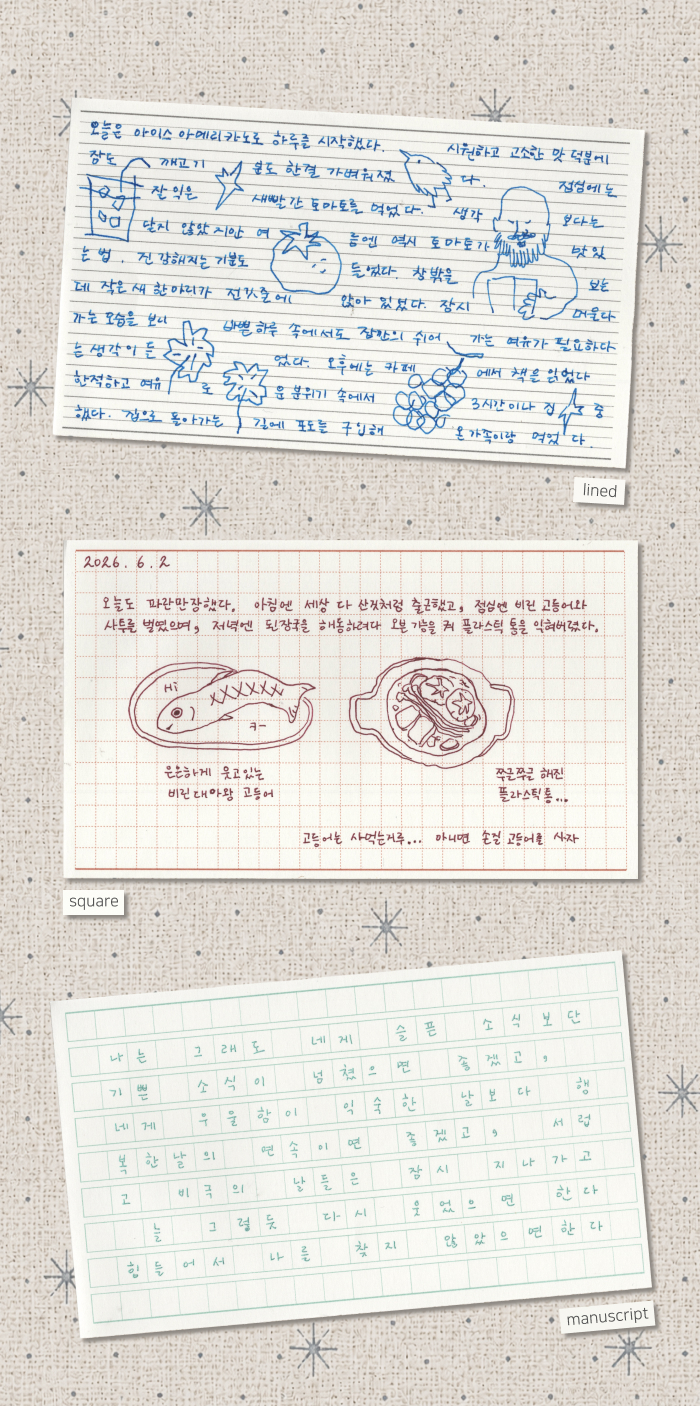 오늘은 아이스 아메리카노로 하루를 시작했다. 시원하고 고소한 맛 덕분에
잠도 깨고 기분도 한결 가벼워졌다. 점심에는
잘 익은 새빨간 토마토를 먹었다. 생각보다는
달지 않았지만 여름엔 역시 토마토가 맛있
는 법. 잔잔해지는 기분도 들었다. 창밖을 보는
데 작은 새 한마리가 전깃줄에 앉아 있었다. 잠시 머물다
가는 모습을 보니 바쁜 하루 속에서도 잠깐의 쉬어 가는 여유가 필요하다
는 생각이 든 었다. 오후에는 카페 에서 책을 읽었다
한적하고 여유 로 운 분위기 속에서 3시간이나 집 중
했다. 집으로 돌아가는 길에 포도를 구입해 온가족이랑 먹었다.
lined
2026. 6. 2
오늘도 파란만장했다. 아침엔 세상 다 산것처럼 출근했고, 점심엔 비린 고등어와
사투를 벌였으며, 저녁엔 된장국을 해동하려다 오븐 기능을 켜 플라스틱 통을 익혀버렸다.
Hi
ㅋ-
은은하게 웃고있는
비린대마왕 고등어
쭈글쭈글 해진
플라스틱통...
고등어는 사먹는거루... 아니면 손질 고등어를 사자
square
나는 그래도 네게 슬픈 소식보단
기쁜 소식이 넘쳤으면 좋겠고,
네게 우울함이 익숙한 날보다 행
복한날의 연속이면 좋겠고, 서럽
고 비극의 날들은 잠시 지나가고
늘 그렇듯 다시 웃었으면 한다
힘들어서 나를 찾지 않았으면한다
manuscript